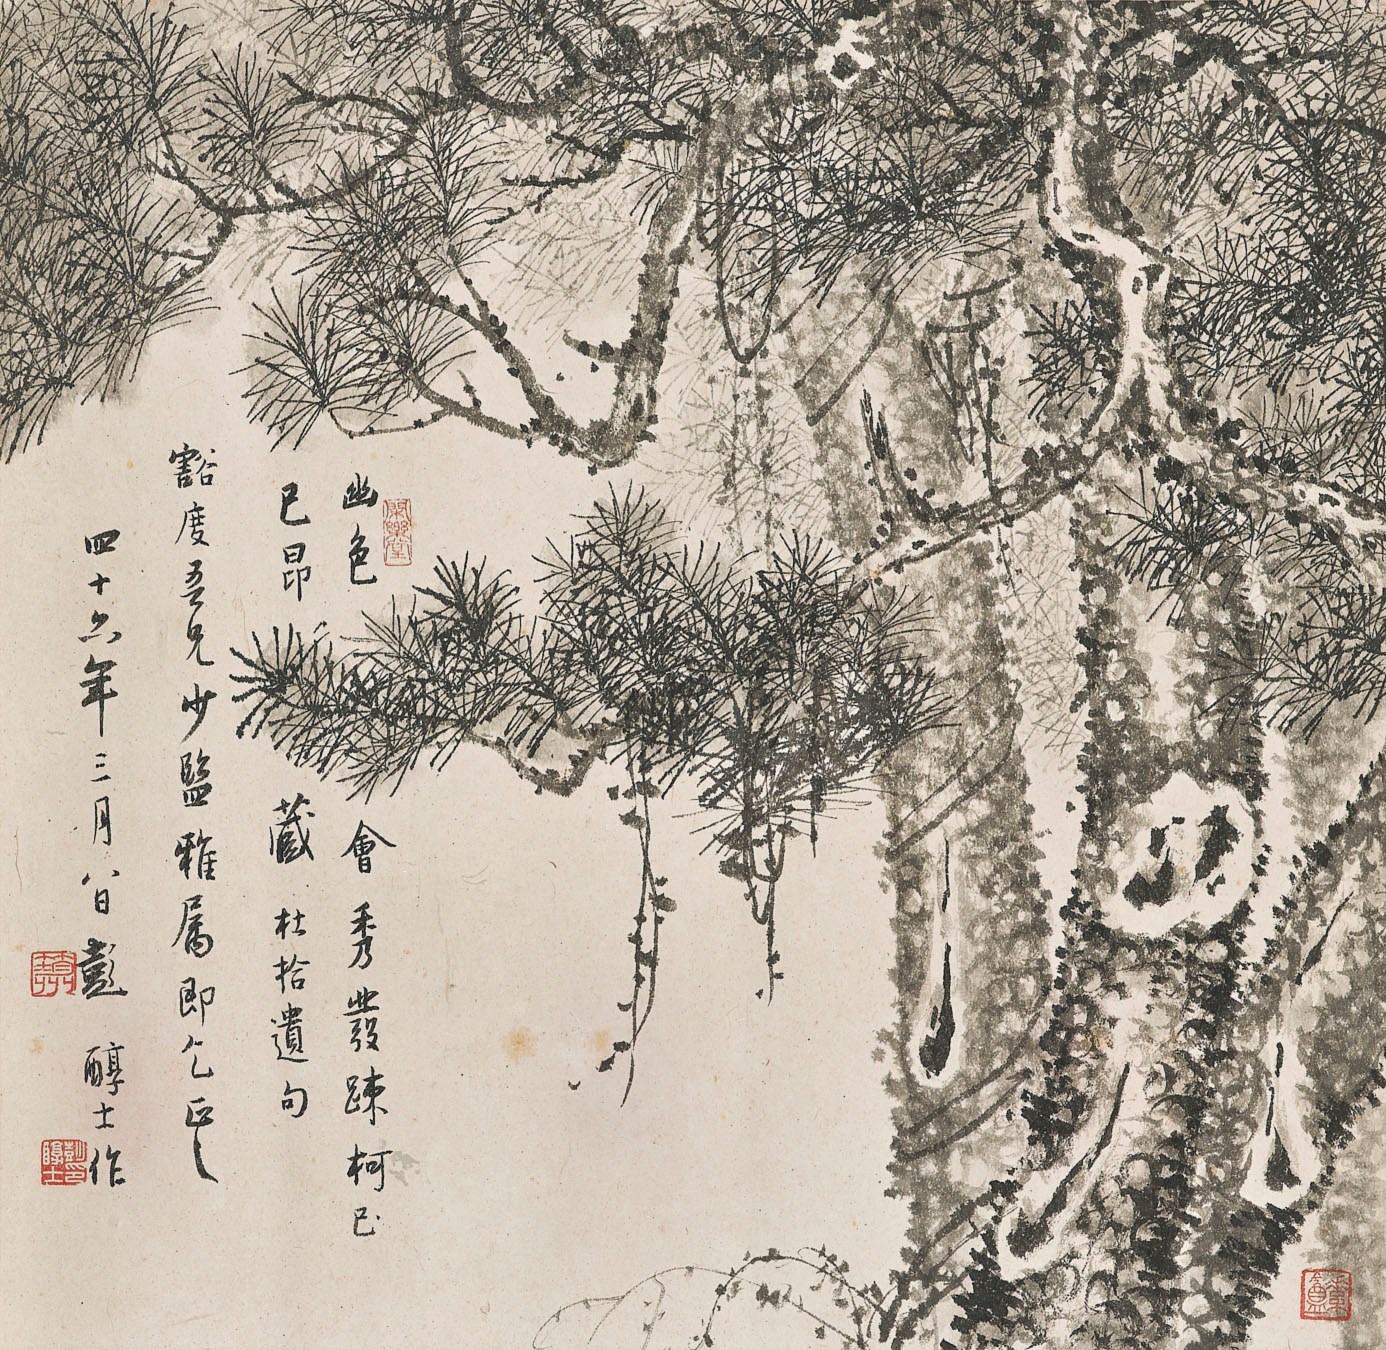 幽色會秀發踈柯已
已昂藏 杜拾遺句
豁度吾兄少監雅屬即乞正之
四十六年三月八日彭醇士作
彭印醇士